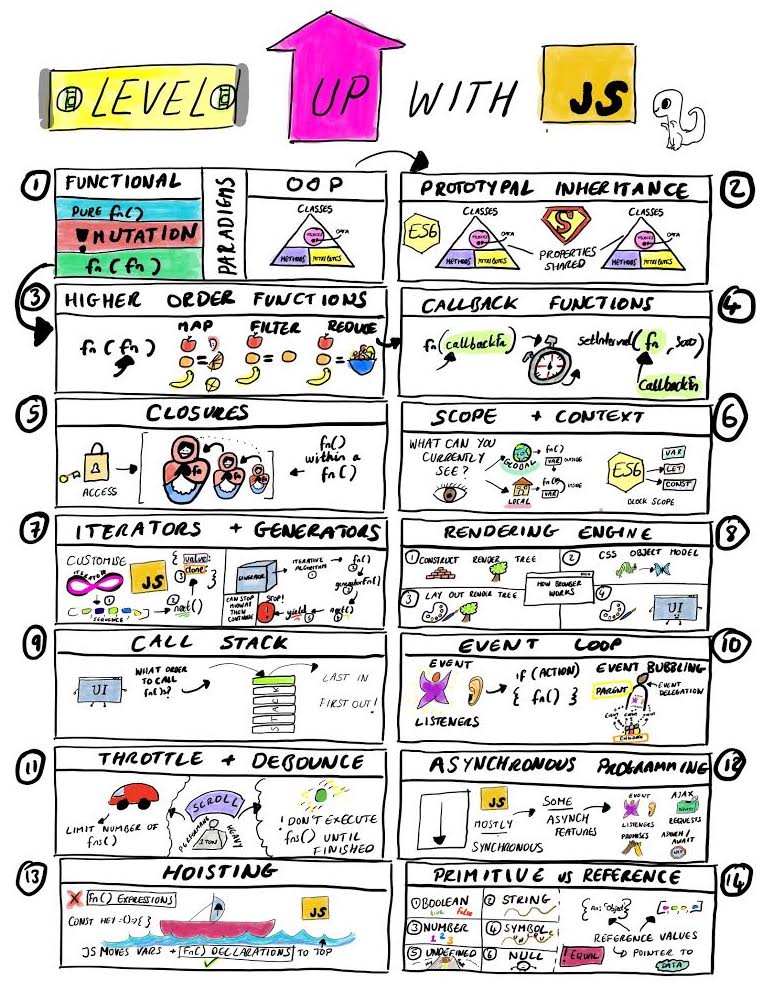 LEVEL UP WITH JS
1 FUNCTIONAL
PURE fn()
! MUTATION
fn(fn)
PARADIGMS
OOP
CLASSES
DATA
METHODS
ATTRIBUTES
PROTOTYPAL INHERITANCE 2
ES6
CLASSES
DATA
METHODS
ATTRIBUTES
S
PROPERTIES
SHARED
CLASSES
DATA
METHODS
ATTRIBUTES
3 HIGHER ORDER FUNCTIONS
fn(fn)
MAP
FILTER
REDUCE
=
=
=
CALLBACK FUNCTIONS 4
fn(callbackfn)
setInterval(fn, 500)
Callbackfn
5 CLOSURES
ACCESS
fn
fn()
within a
fn()
SCOPE + CONTEXT 6
WHAT CAN YOU
CURRENTLY
SEE?
GLOBAL
fn()
VAR OUTSIDE
LOCAL
fn() INSIDE
VAR
ES6
VAR
LET
CONST
BLOCK SCOPE
7 ITERATORS + GENERATORS
CUSTOMISE
ITERATOR
JS
{ value:
done:
3 }
1
SEQUENCE
2 next()
GENERATOR
ITERATIVE
ALGORITHM
1
fn()
generatorfn()
CAN STOP
MIDWAY
THEN
CONTINUE
STOP!
yield
next()
RENDERING ENGINE 8
1 CONSTRUCT RENDER TREE
2 CSS OBJECT MODEL
HOW BROWSER
WORKS
3 LAY OUT RENDER TREE
4
UI
9 CALL STACK
UI
WHAT ORDER
TO CALL
fn()s?
STACK
LAST IN
FIRST OUT!
EVENT LOOP 10
EVENT
LISTENERS
IF (ACTION)
{ fn() }
EVENT BUBBLING
PARENT
EVENT
DELEGATION
CHILDREN
11 THROTTLE + DEBOUNCE
LIMIT NUMBER OF
fns()
SCROLL
PERFORMANCE
HEAVY
1 TON
! DON'T EXECUTE
fns() UNTIL
FINISHED
ASYNCHRONOUS PROGRAMMING 12
JS
MOSTLY
SYNCHRONOUS
SOME
ASYNCH
FEATURES
EVENT
LISTENERS
AJAX
REQUESTS
PROMISES
ASYNCH/
AWAIT
13 HOISTING
X fn() EXPRESSIONS
CONST HEY = () => { }
JS
JS MOVES VARS + fn() DECLARATIONS TO TOP
PRIMITIVE vs REFERENCE 14
1 BOOLEAN
true false
2 STRING
3 NUMBER
1 2 3
4 SYMBOL
5 UNDEFINED
6 NULL
{An: 'Object'}
REFERENCE VALUES
! EQUAL
POINTER TO
DATA